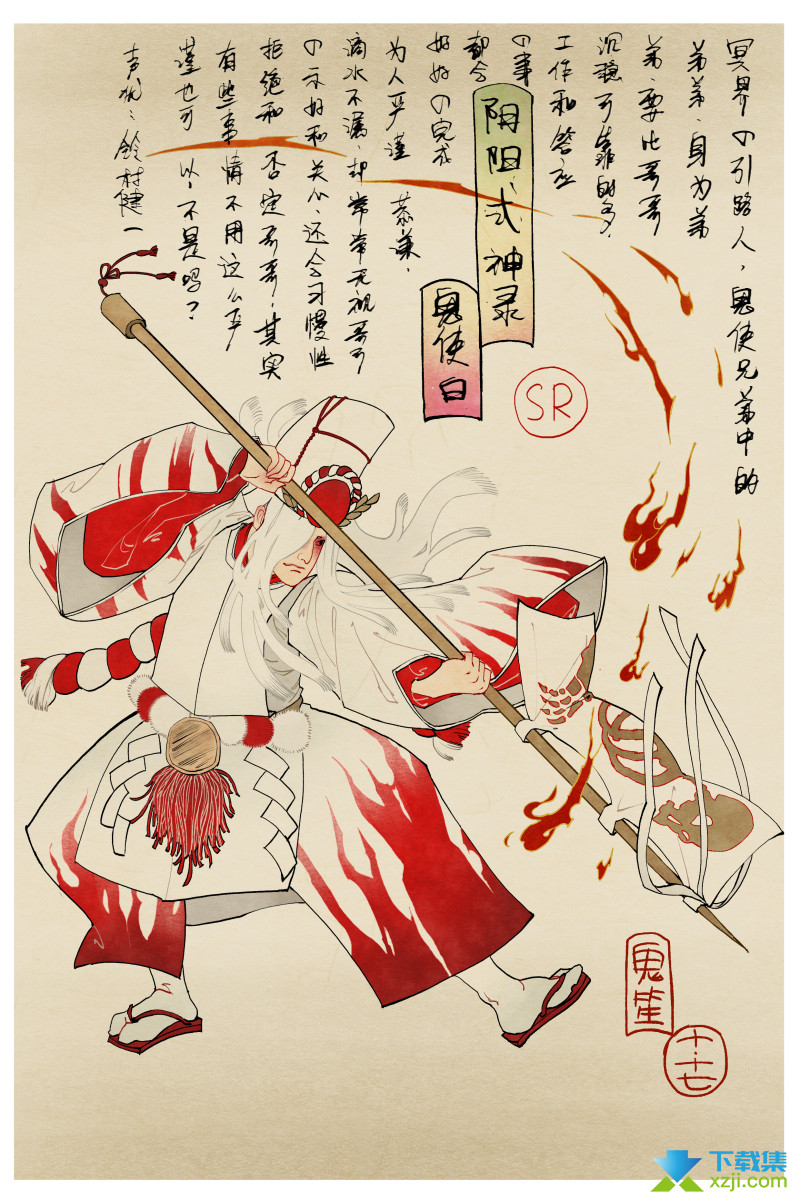 冥界の引路人，鬼使兄弟中的
弟弟、身为弟
弟、要比哥哥
沉稳可靠的多、
工作和答应
の事
都会
好好の完成
为人严谨 恭谦、
滴水不漏、却常常无视哥哥
の示好和关心、还会习惯性
拒绝和 否定哥哥、其实
有些事情不用这么严
谨也可以、不是吗？
声优：铃村健一
阴阳式神录
鬼使白
SR
鬼笙
十·十七
下载集
xzji.com